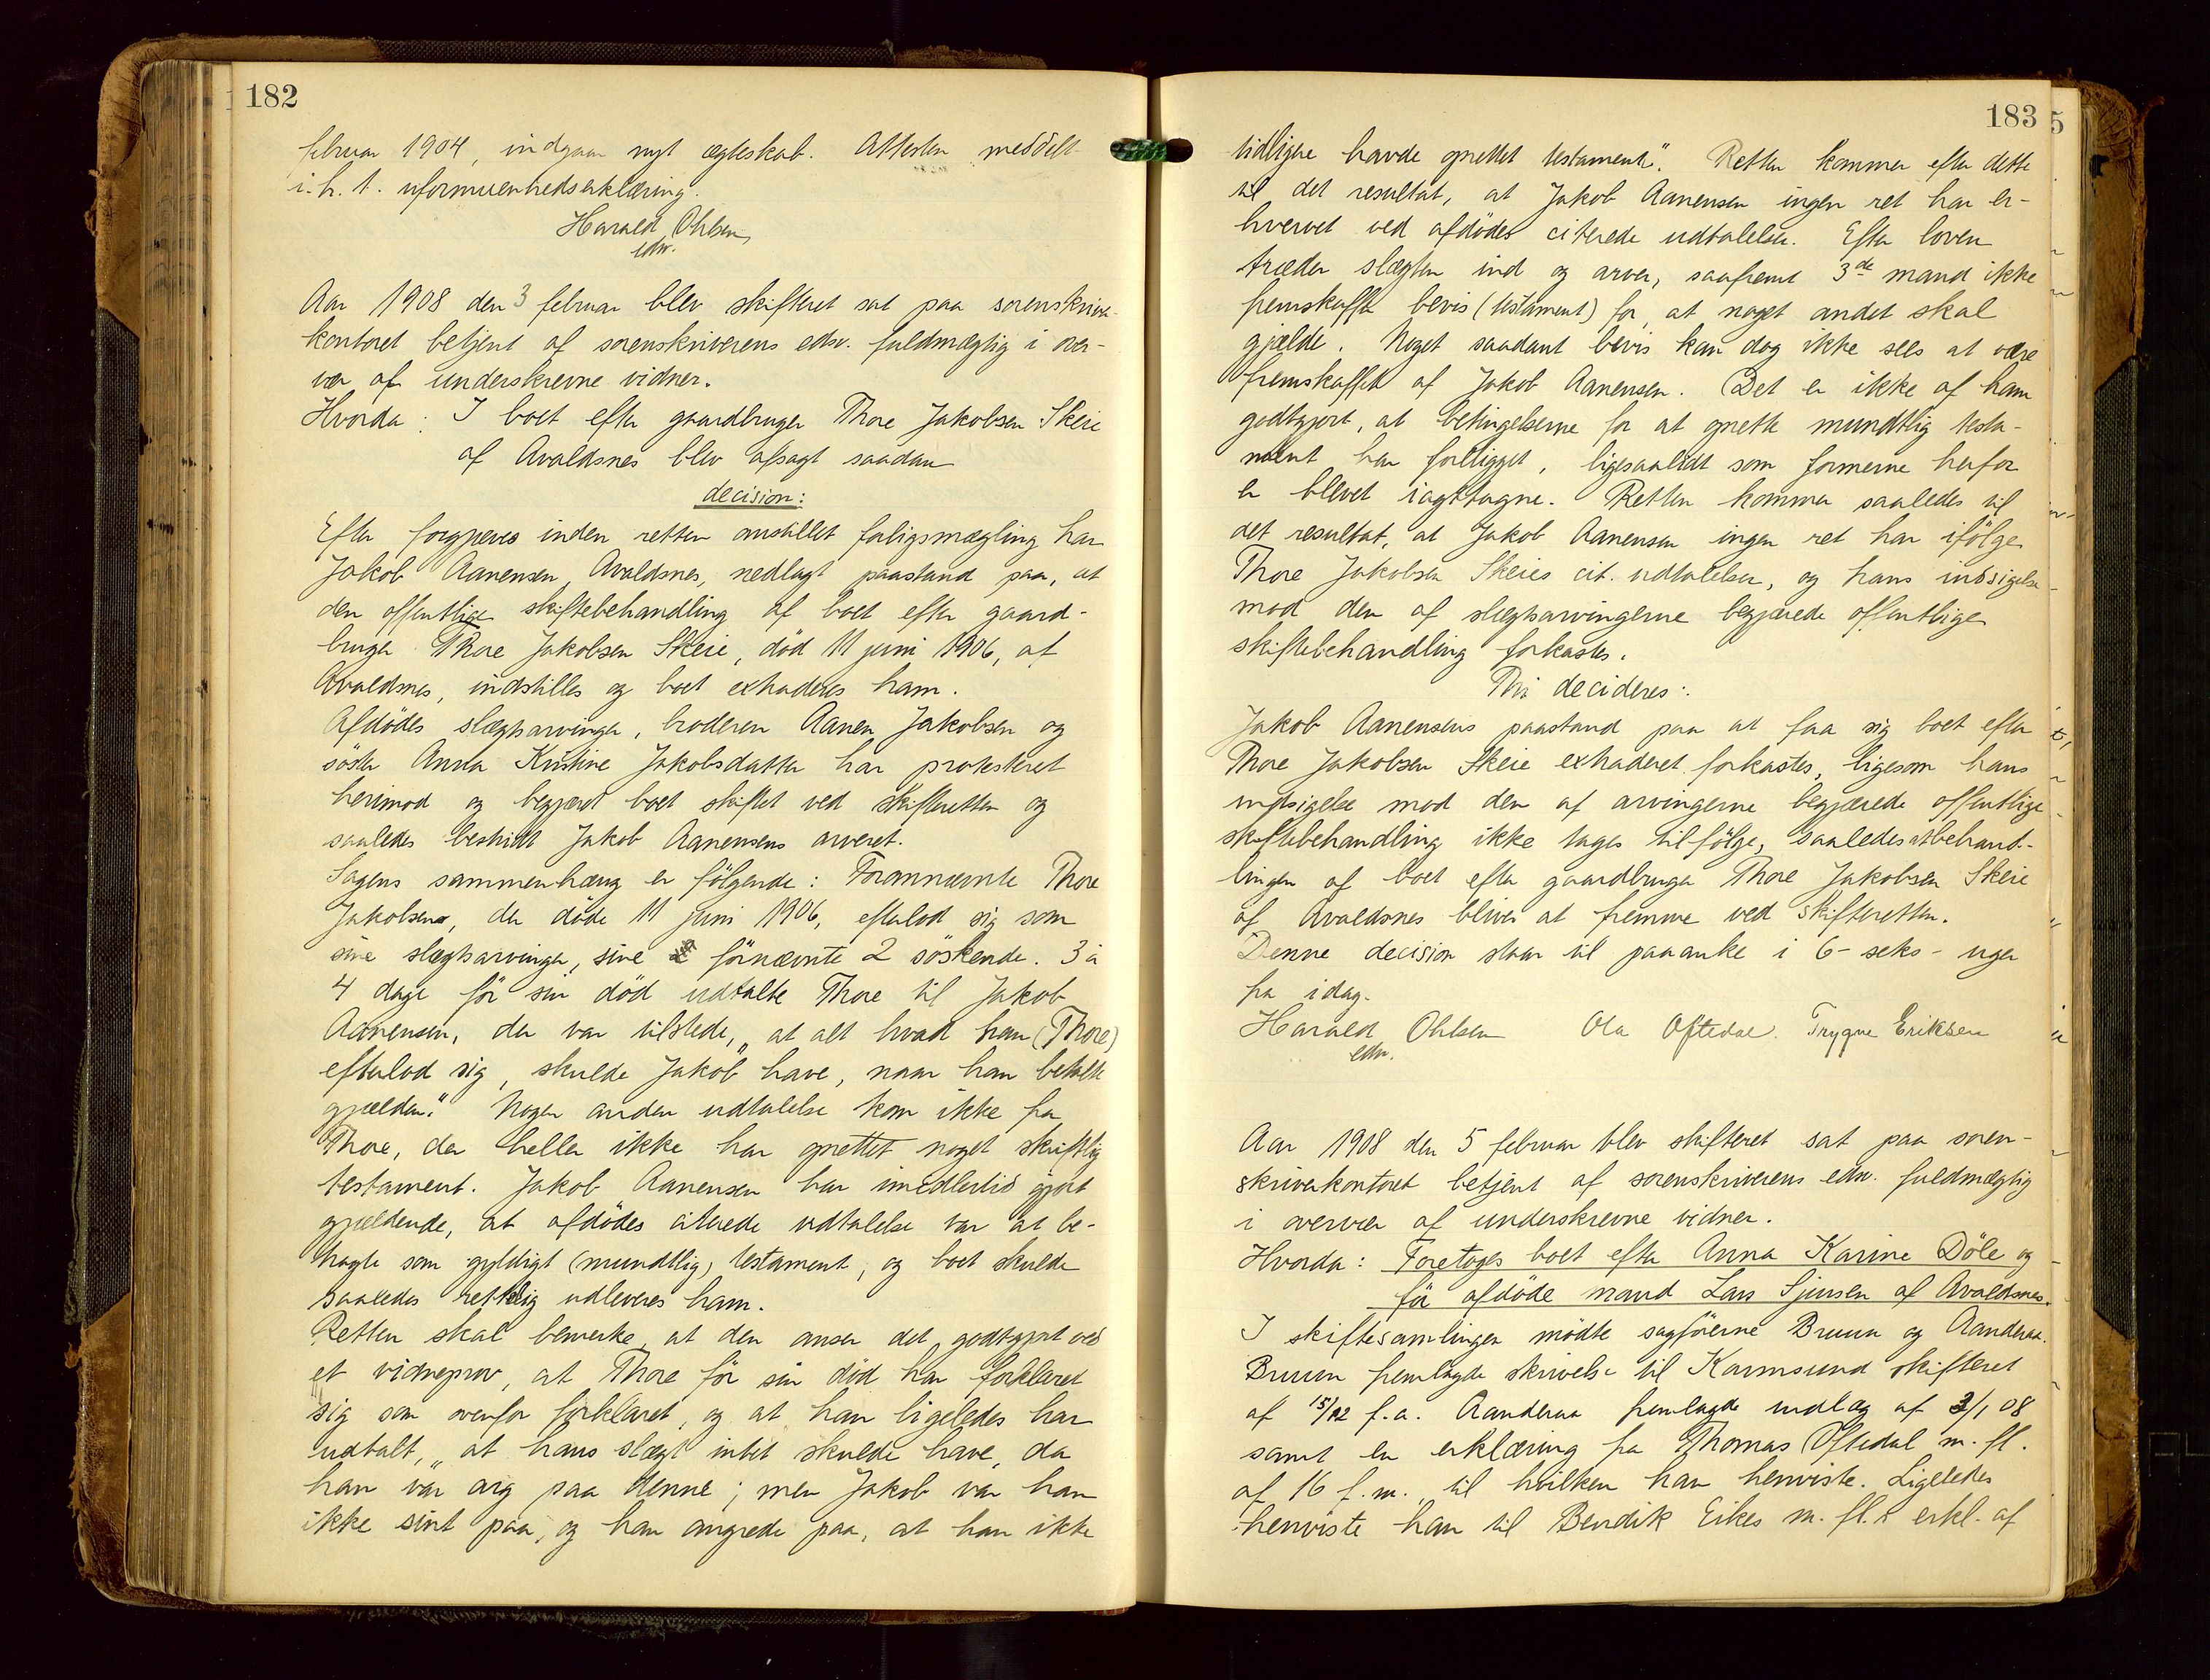 182
februar 1904, indgaar nyt ægteskab. Attesten meddelt
i. h. t. uformuenhedserklæring.
Harald Ohlsen
edsv.
Aar 1908 den 3 februar blev skifteret sat paa sorenskriver-
kontoret betjent af sorenskriverens edsv. fuldmægtig i over-
vær af underskrevne vidner.
Hvorda: I boet efter gaardbruger Thore Jakobsen Skeie
af Avaldsnes blev afsagt saadan
decision:
Efter forgjæves inden retten anstillet forligsmægling har
Jakob Aanensen, Avaldsnes, nedlagt paastand paa, at
den offentlige skiftebehandling af boet efter gaard-
bruger Thore Jakobsen Skeie, död 11 juni 1906, af
Avaldsnes, indstilles og boet extraderes ham.
Afdödes slægtsarvinger, broderen Aanen Jakobsen og
söster Anna Kristine Jakobsdatter har protesteret
herimod og begjæret boet skiftet ved skifteretten og
saaledes bestridt Jakob Aanensens arveret.
Sagens sammenhæng er fölgende: Forannævnte Thore
Jakobsen, der döde 11 juni 1906, efterlod sig som
sine slægtsarvinger, sine förnævnte 2 söskende. 3 à
4 dage för sin död udtalte Thore til Jakob
Aanensen, der var tilstede, „at alt hvad han (Thore)
efterlod sig, skulde Jakob have, naar han betalte
gjælden." Nogen anden udtalelse kom ikke fra
Thore, der heller ikke har oprettet noget skriftlig
testament. Jakob Aanensen har imidlertid gjort
gjældende, at afdödes citerede udtalelse var at be-
tragte som gyldigt (mundtlig) testament, og boet skulde
saaledes rettelig udleveres ham.
Retten skal bemerke, at den anser det godtgjort ved
et vidneprov, at Thore för sin död har forklaret
sig som ovenfor forklaret, og at han ligeledes har
udtalt, „at hans slægt intet skulde have, da
han var arg paa denne; men Jakob var han
ikke sint paa, og han angrede paa, at han ikke
183
tidligere havde oprettet testament". Retten kommer efter dette
til det resultat, at Jakob Aanensen ingen ret har er-
hvervet ved afdödes citerede udtalelse. Efter loven
træder slægten ind og arver, saafremt 3de mand ikke
fremskaffer bevis (testament) for, at noget andet skal
gjælde. Noget saadant bevis kan dog ikke sees at være
fremskaffet af Jakob Aanensen. Det er ikke af ham
godtgjort, at betingelserne for at oprette mundtlig testa-
ment har foreligget, ligesaalidt som formerne herfor
er blevet iagttagne. Retten kommer saaledes til
det resultat, at Jakob Aanensen ingen ret har ifölge
Thore Jakobsen Skeies cit. udtalelser, og hans indsigelse
mod den af slægtsarvingerne begjærede offentlige
skiftebehandling forkastes.
Thi decideres:
Jakob Aanensens paastand paa at faa sig boet efter
Thore Jakobsen Skeie extraderet forkastes, ligesom hans
indsigelse mod den af arvingerne begjærede offentlige
skiftebehandling ikke tages tilfölge, saaledes at behand-
lingen af boet efter gaardbruger Thore Jakobsen Skeie
af Avaldsnes bliver at fremme ved skifteretten.
Denne decision staar til paaanke i 6 - seks - uger
fra idag.
Harald Ohlsen Ola Oftedal. Trygve Eriksen
edsv.
Aar 1908 den 5 februar blev skifteret sat paa soren-
skriverkontoret betjent af sorenskriverens edsv. fuldmægtig
i overvær af underskrevne vidner.
Hvorda: Foretoges boet efter Anna Karine Döle og
för afdöde mand Lars Sjursen af Avaldsnes.
I skiftesamlingen mödte sagförerne Bruun og Aanderaa.
Bruun fremlagde skrivelse til Karmsund skifteret
af 15/12 f. a. Aanderaa fremlagde indlæg af 3/1 08
samt en erklæring fra Thomas Oftedal m. fl.
af 16 f. m. til hvilken han henviste. Ligeledes
henviste han til Bendik Eikes m. fl.s erkl. af